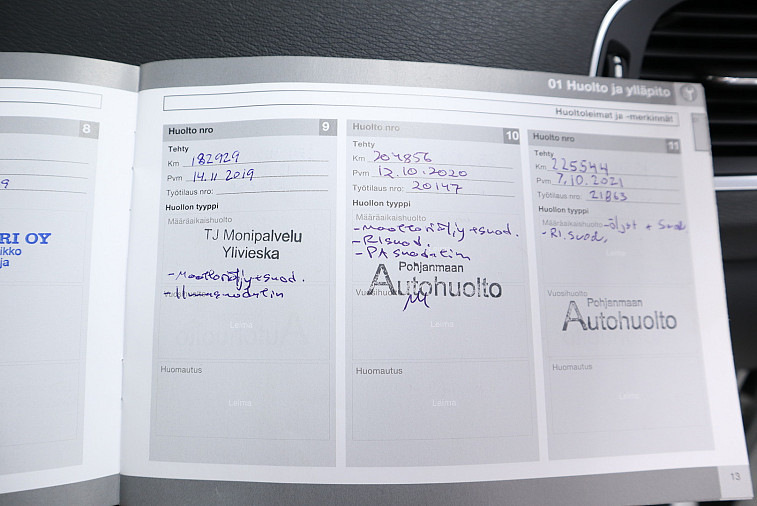 8
9
RI OY
ikko
ja
01 Huolto ja ylläpito
Huoltoleimat ja -merkinnät
Huolto nro 9
Tehty
Km 182929
Pvm 14.11 2019
Työtilaus nro:
Huollon tyyppi
Määräaikaishuolto
TJ Monipalvelu
Ylivieska
- Moottoriöljy + suod.
Leima
Huomautus
Leima
Huolto nro 10
Tehty
Km 204856
Pvm 12.10.2020
Työtilaus nro: 20147
Huollon tyyppi
Määräaikaishuolto
- moottoriöljy + suod.
- RI suod.
- PA suodatin
Pohjanmaan
Autohuolto
Vuosihuolto
Leima
Huomautus
Leima
Huolto nro 11
Tehty
Km 225544
Pvm 7.10.2021
Työtilaus nro: 21863
Huollon tyyppi
Määräaikaishuolto - Öljyt + suod
- RI. suod,
Vuosihuolto
Pohjanmaan
Autohuolto
Leima
Huomautus
Leima
13